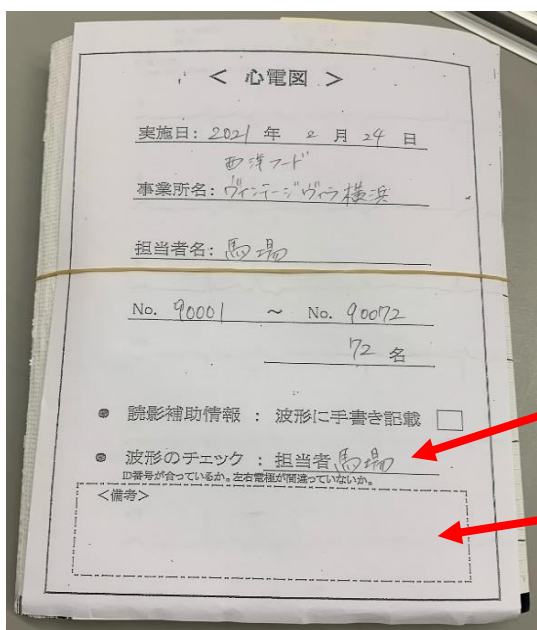 < 心電図 >
実施日: 2021 年 2 月 24 日
西洋フード
事業所名: ヴィンテージヴィラ横浜
担当者名: 馬場
No. 90001 ~ No. 90072
72 名
読影補助情報 : 波形に手書き記載
波形のチェック : 担当者 馬場
ID番号が合っているか。左右電極が間違っていないか。
<備考>